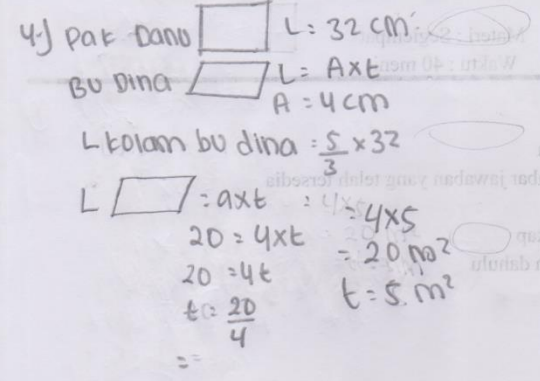 4.) Pak Danu L = 32 cm
Bu Dina L = A x t
A = 4 cm
L kolam bu dina = 5/3 x 32
L = a x t
= 4 x 5
20 = 4 x t
= 20 m²
20 = 4t
t = 5 m²
t = 20/4
=